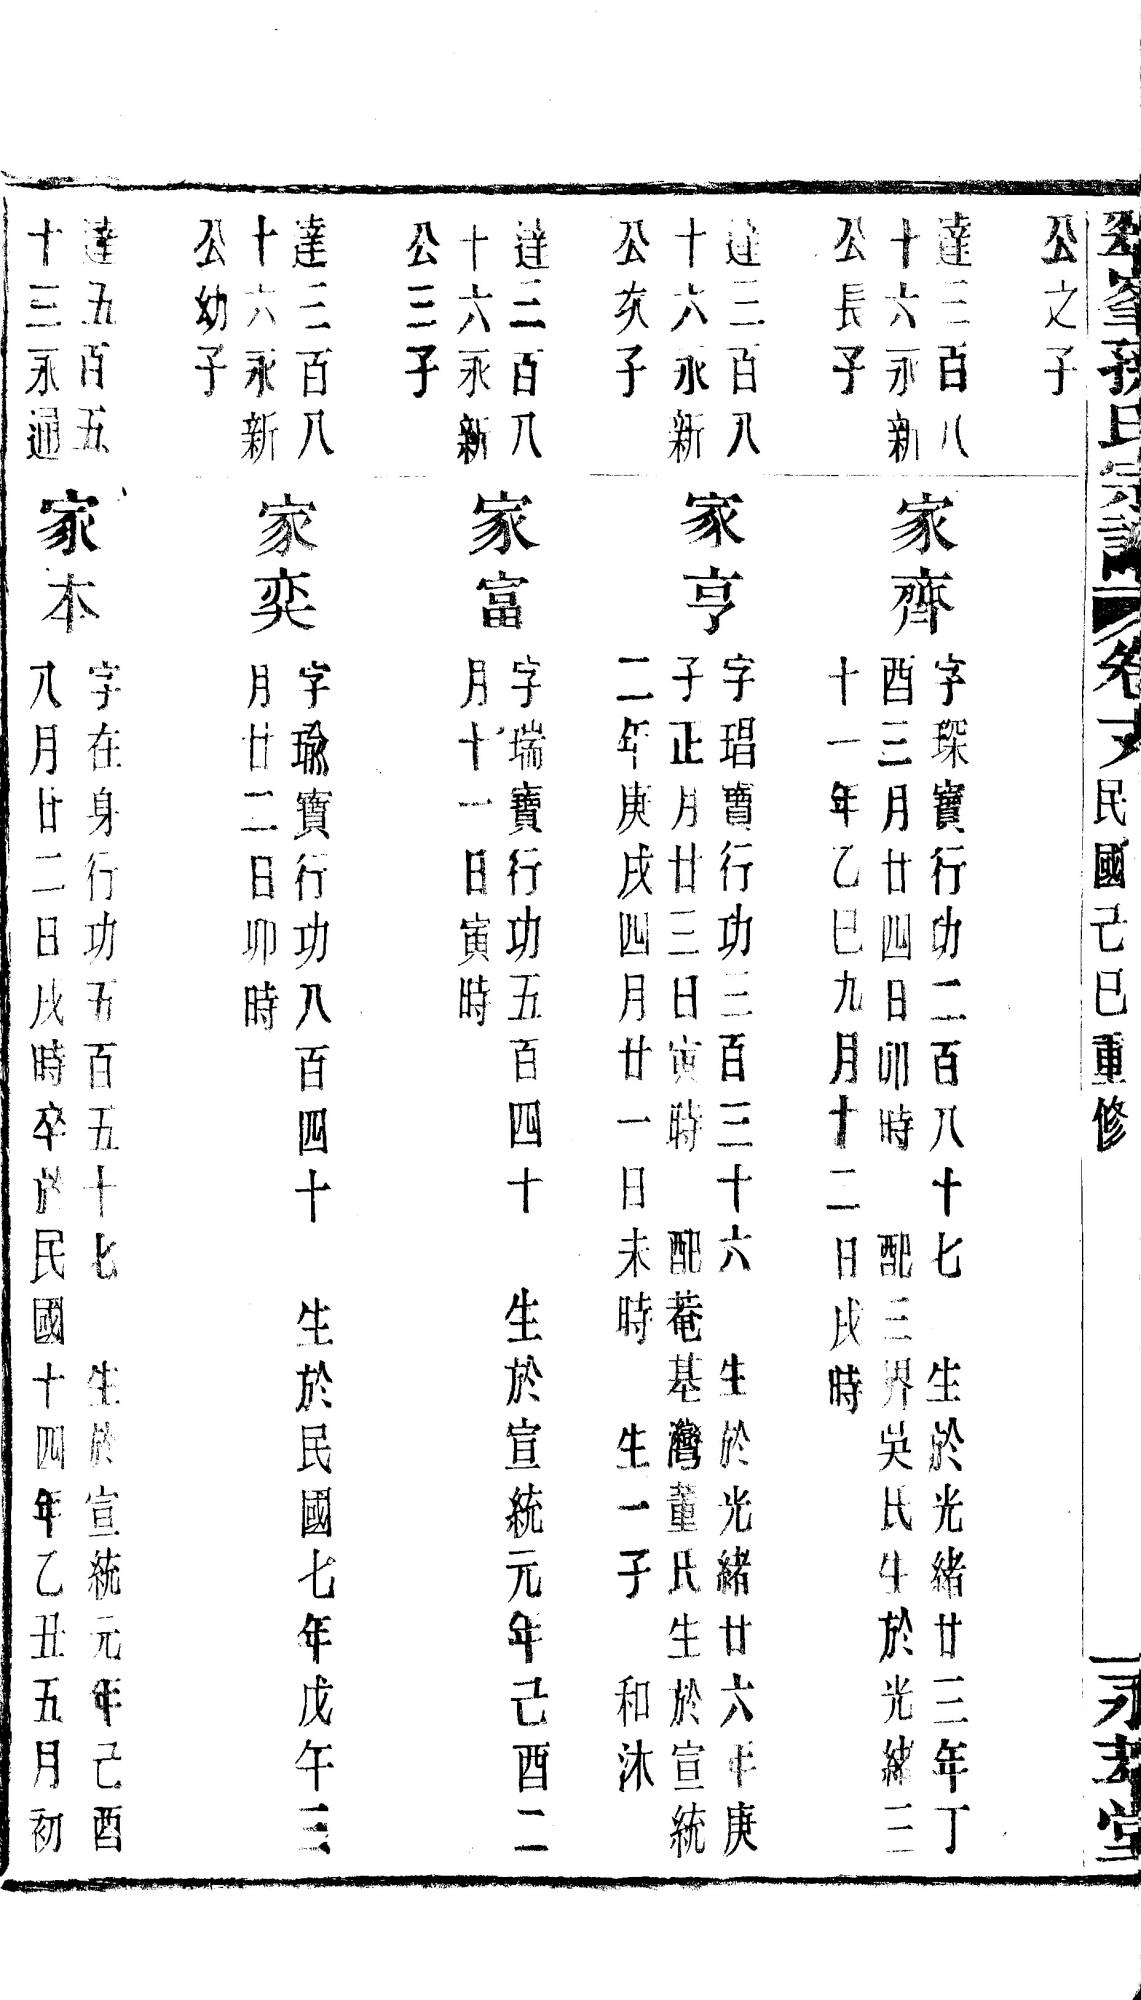 公之子
達三百八
十六永新
公長子
家齊
字琛寶行功二百八十七　生於光緒廿三年丁
酉三月廿四日卯時　配三界吳氏生於光緒三
十一年乙巳九月十二日戌時
達三百八
十六永新
公次子
家亨
字琩寶行功三百三十六　生於光緒廿六年庚
子正月廿三日寅時　配菴基灣董氏生於宣統
二年庚戌四月廿一日未時　生一子　和沐
達三百八
十六永新
公三子
家富
字瑞寶行功五百四十　生於宣統元年己酉二
月十一日寅時
達三百八
十六永新
公幼子
家奕
字瑜寶行功八百四十　生於民國七年戊午三
月廿二日卯時
達五百五
十三永通
家本
字在身行功五百五十七　生於宣統元年己酉
八月廿二日戌時卒於民國十四年乙丑五月初
孫氏宗譜
卷
民國己巳重修
堂